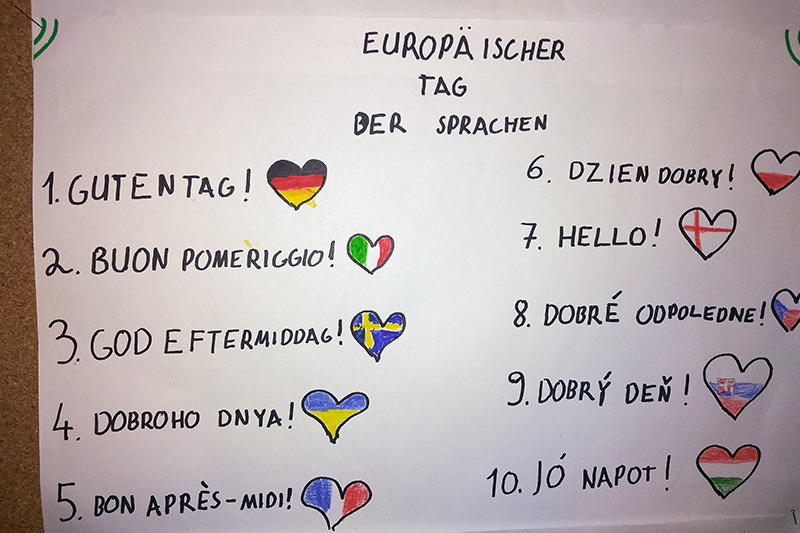 EUROPÄISCHER
TAG
DER SPRACHEN
1. GUTEN TAG!
2. BUON POMERIGGIO!
3. GOD EFTERMIDDAG!
4. DOBROHO DNYA!
5. BON APRÈS-MIDI!
6. DZIEN DOBRY!
7. HELLO!
8. DOBRÉ ODPOLEDNE!
9. DOBRÝ DEŇ!
10. JÓ NAPOT!